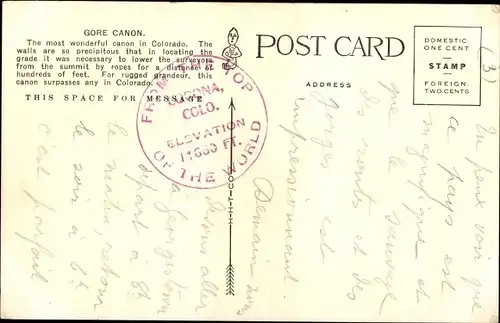 GORE CANON.
The most wonderful canon in Colorado. The
walls are so precipitous that in locating the
grade it was necessary to lower the surveyors
from the summit by ropes for a distance of
hundreds of feet. For rugged grandeur, this
canon surpasses any in Colorado.
THIS SPACE FOR MESSAGE
FROM THE TOP
CORONA,
COLO.
ELEVATION
11660 FT.
OF THE WORLD
POST CARD
ADDRESS
DOMESTIC
ONE CENT
STAMP
FOREIGN
TWO CENTS
(3)
Tu peux voir que
ce pays est
magnifique et
que le sauvage
des routes et des
gorges est
impressionnant
Demain nous
irons aller
à Georgetown
départ à 8h
le matin, retour
le soir à 6h
c'est parfait